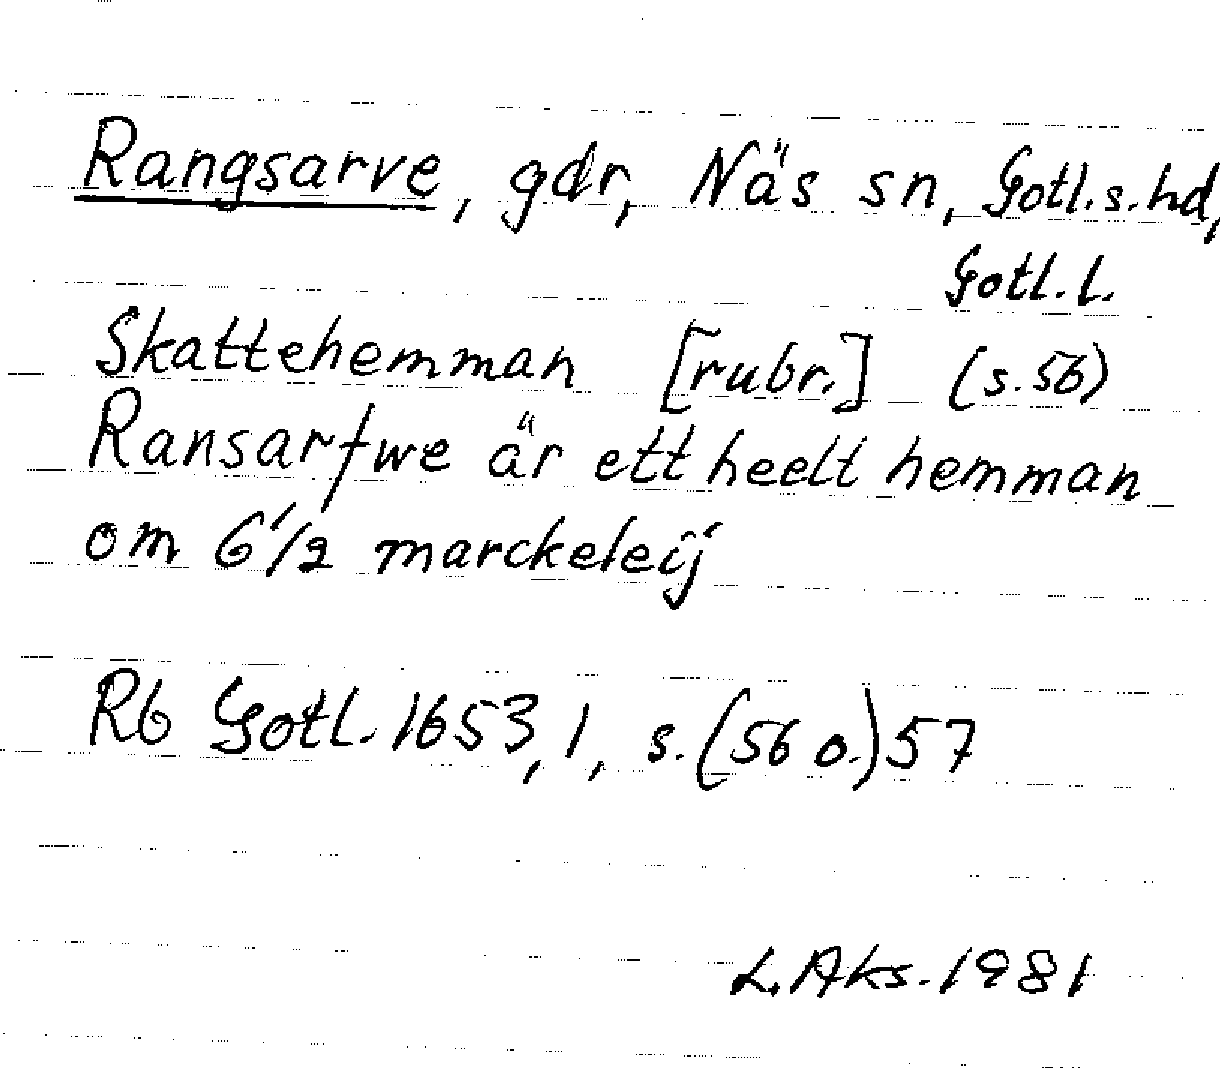 Rangsarve, gdr, Näs sn, Gotl. s. hd,
Gotl. l.
Skattehemman [rubr.] (s. 56)
Ransarfwe är ett heelt hemman
om 6 1/2 marckeleij
Rb Gotl. 1653, 1, s. (56 o.) 57
L. Aks. 1981